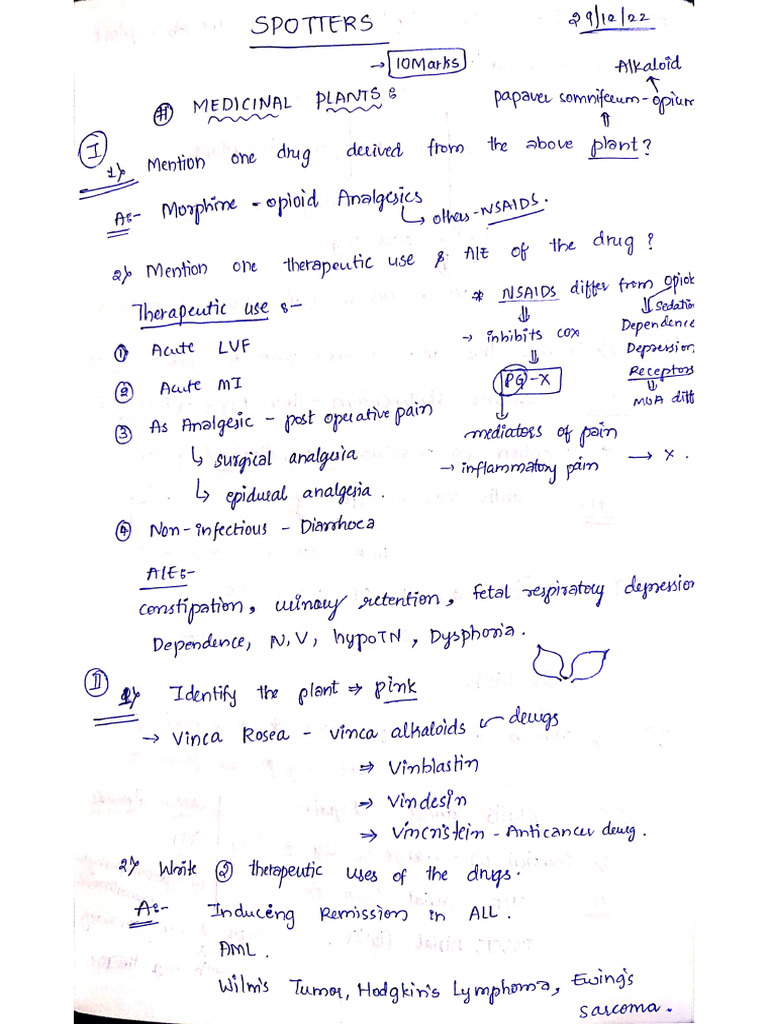 SPOTTERS
29/12/22
→ 10Marks
Alkaloid
# MEDICINAL PLANTS :
papaver somniferum - opium
I
1) Mention one drug derived from the above plant?
A:- Morphine - opioid Analgesics
↳ others - NSAIDS.
2) Mention one therapeutic use & A/E of the drug?
Therapeutic use :-
① Acute LVF
② Acute MI
③ As Analgesic - post operative pain
↳ surgical analgesia
↳ epidural analgesia.
④ Non-infectious - Diarrhoea
* NSAIDS differ from opioi
→ inhibits cox
PG - X
mediators of pain
→ inflammatory pain → X.
Sedation
Dependence
Depression,
Receptors
MOA diff
A/E:-
constipation, urinary retention, fetal respiratory depression
Dependence, N, V, hypoTN, Dysphoria.
II
1) Identify the plant ⇒ pink
→ Vinca Rosea - vinca alkaloids drugs
⇒ Vinblastin
⇒ Vindesin
⇒ Vincristein - Anticancer drug.
2) Write ② therapeutic uses of the drugs.
A:- Inducing Remission in ALL.
AML.
Wilm's Tumor, Hodgkin's Lymphoma, Ewing's
sarcoma.